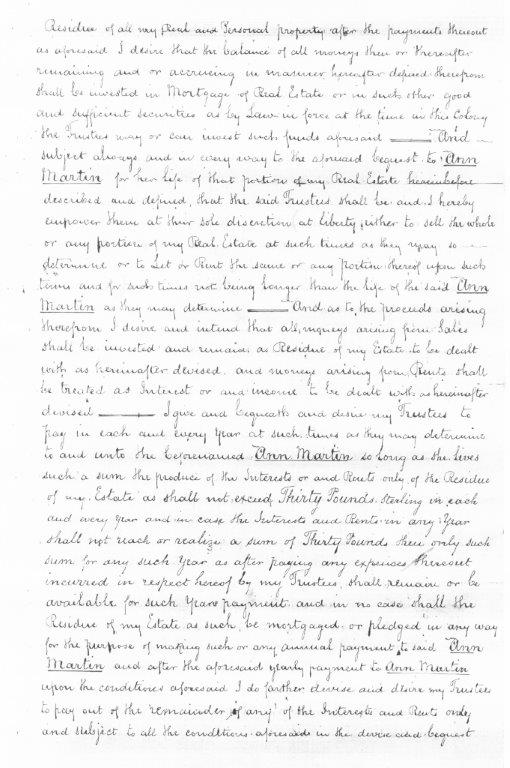 Residue of all my Real and Personal property after the payments thereout
as aforesaid I desire that the balance of all moneys then or thereafter
remaining and or accruing in manner hereafter defined therefrom
shall be invested in Mortgage of Real Estate or in such other good
and sufficient securities as by Law in force at the time in this Colony
the Trustees may or can invest such funds aforesaid ——— And —
subject always and in every way to the aforesaid bequest to Ann
Martin for her life of that portion of my Real Estate hereinbefore
described and defined, that the said Trustees shall be and I hereby
empower them at their sole discretion at liberty either to sell the whole
or any portion of my Real Estate at such times as they may so —
determine or to Let or Rent the same or any portion thereof upon such
terms and for such times not being longer than the life of the said Ann
Martin as they may determine ——— And as to the proceeds arising
therefrom I desire and intend that all moneys arising from Sales
shall be invested and remain as Residue of my Estate to be dealt
with as hereinafter devised and moneys arising from Rents shall
be treated as Interest or and income to be dealt with as hereinafter
devised ——— I give and bequeath and desire my Trustees to
pay in each and every year at such times as they may determine
to and unto the beforenamed Ann Martin so long as she lives
such a sum the produce of the Interests or and Rents only of the Residue
of my Estate as shall not exceed Thirty Pounds Sterling in each
and every year and in case the Interests and Rents in any Year
shall not reach or realize a sum of Thirty Pounds then only such
sum for any such Year as after paying any expences thereout
incurred in respect hereof by my Trustees shall remain or be
available for such Years payment and in no case shall the
Residue of my Estate as such be mortgaged or pledged in any way
for the purpose of making such or any annual payment to said Ann
Martin and after the aforesaid yearly payment to Ann Martin
upon the conditions aforesaid I do further devise and desire my Trustees
to pay out of the remainder if any of the Interests and Rents only
and subject to all the conditions aforesaid in the devise and bequest